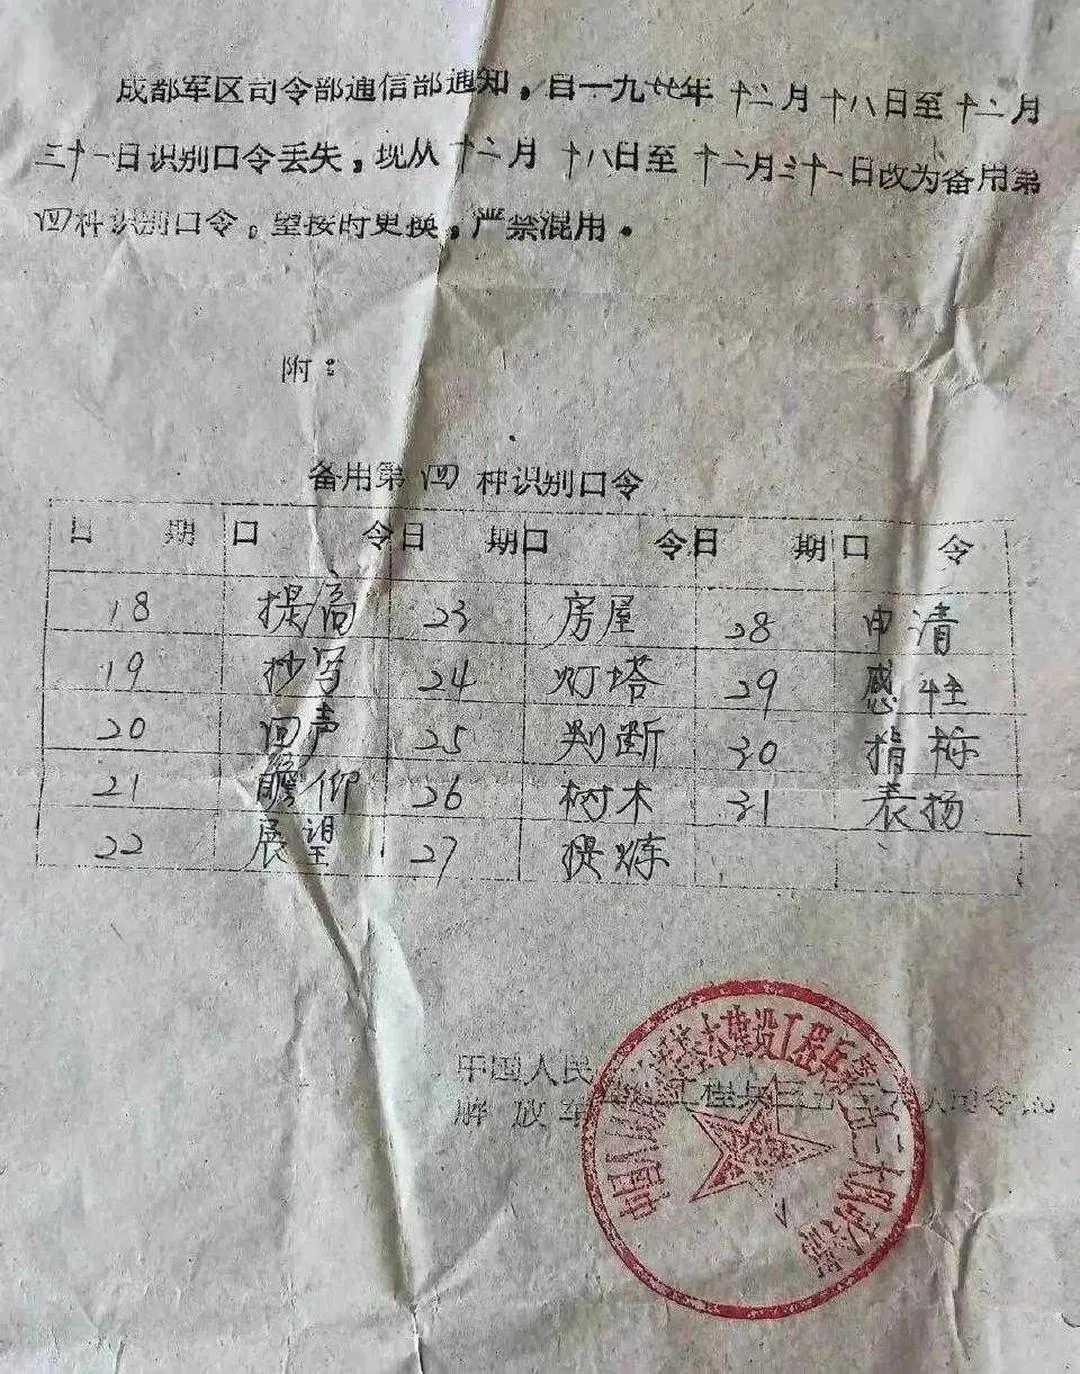 成都军区司令部通信部通知，自一九七七年十二月十八日至十二月
三十一日识别口令丢失，现从十二月十八日至十二月三十一日改为备用第
四种识别口令，望按时更换，严禁混用。
附：
备用第四种识别口令
日期 口令 日期 口令 日期 口令
18 提高 23 房屋 28 申请
19 抄写 24 灯塔 29 感性
20 回声 25 判断 30 指标
21 瞻仰 26 树木 31 表扬
22 展望 27 提炼
中国人民
解放军 工程兵 令部
中国人民解放军基本建设工程兵第 五二大队司令部